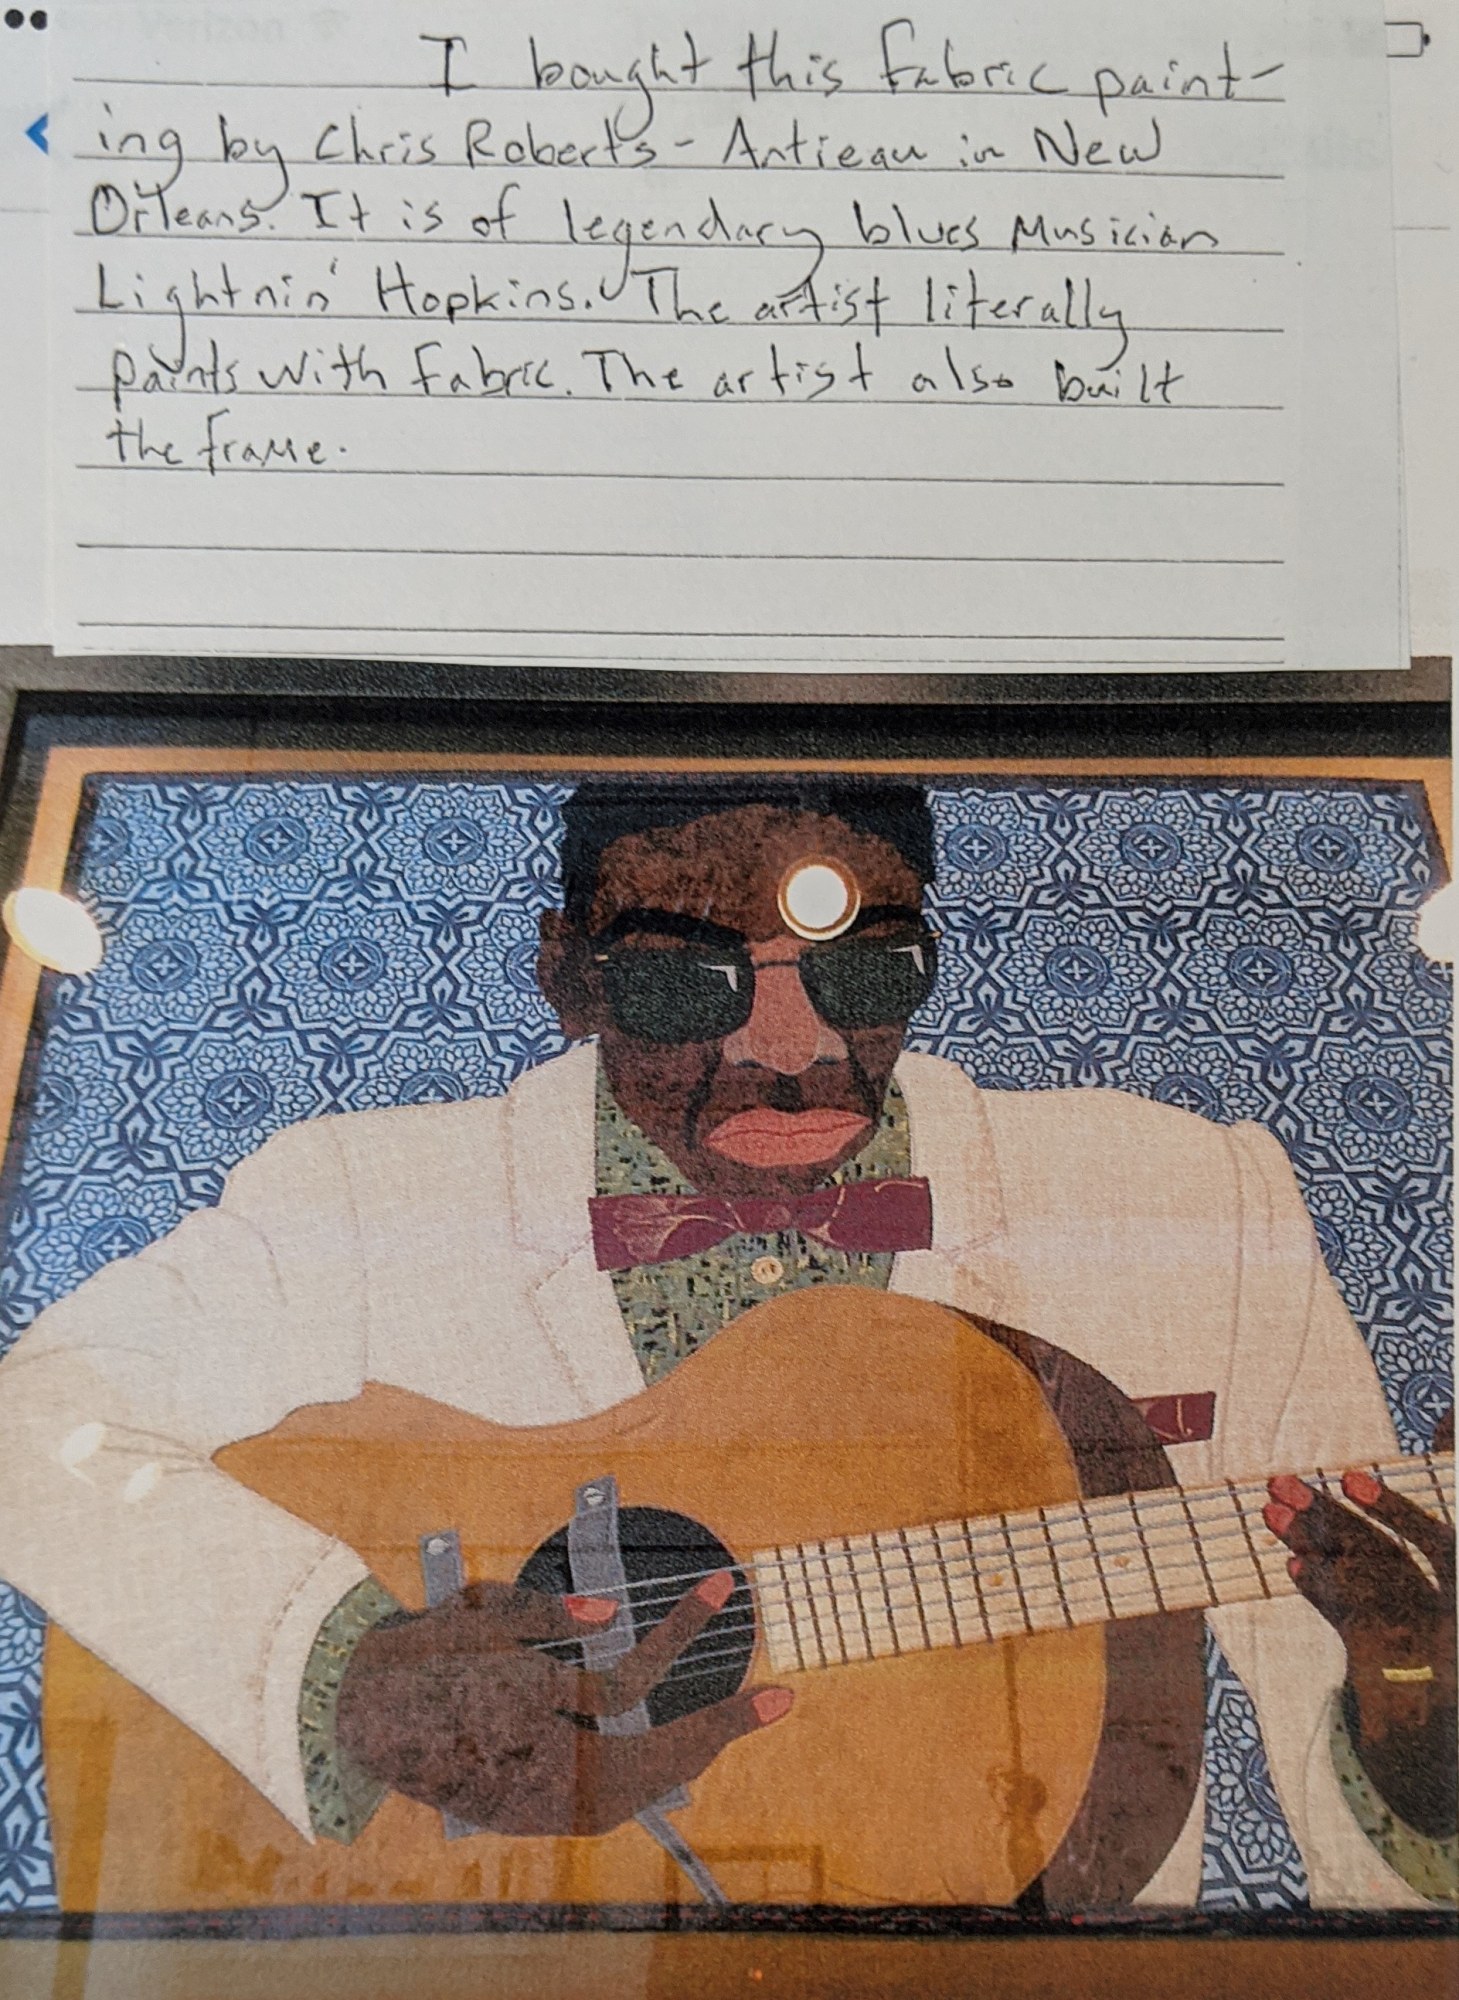 I bought this fabric paint-
ing by Chris Roberts-Antieau in New
Orleans. It is of legendary blues musician
Lightnin' Hopkins. The artist literally
paints with fabric. The artist also built
the frame.